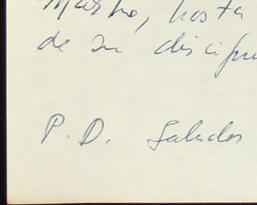 Maestro, hasta
de su discípu
P.D. Saludos